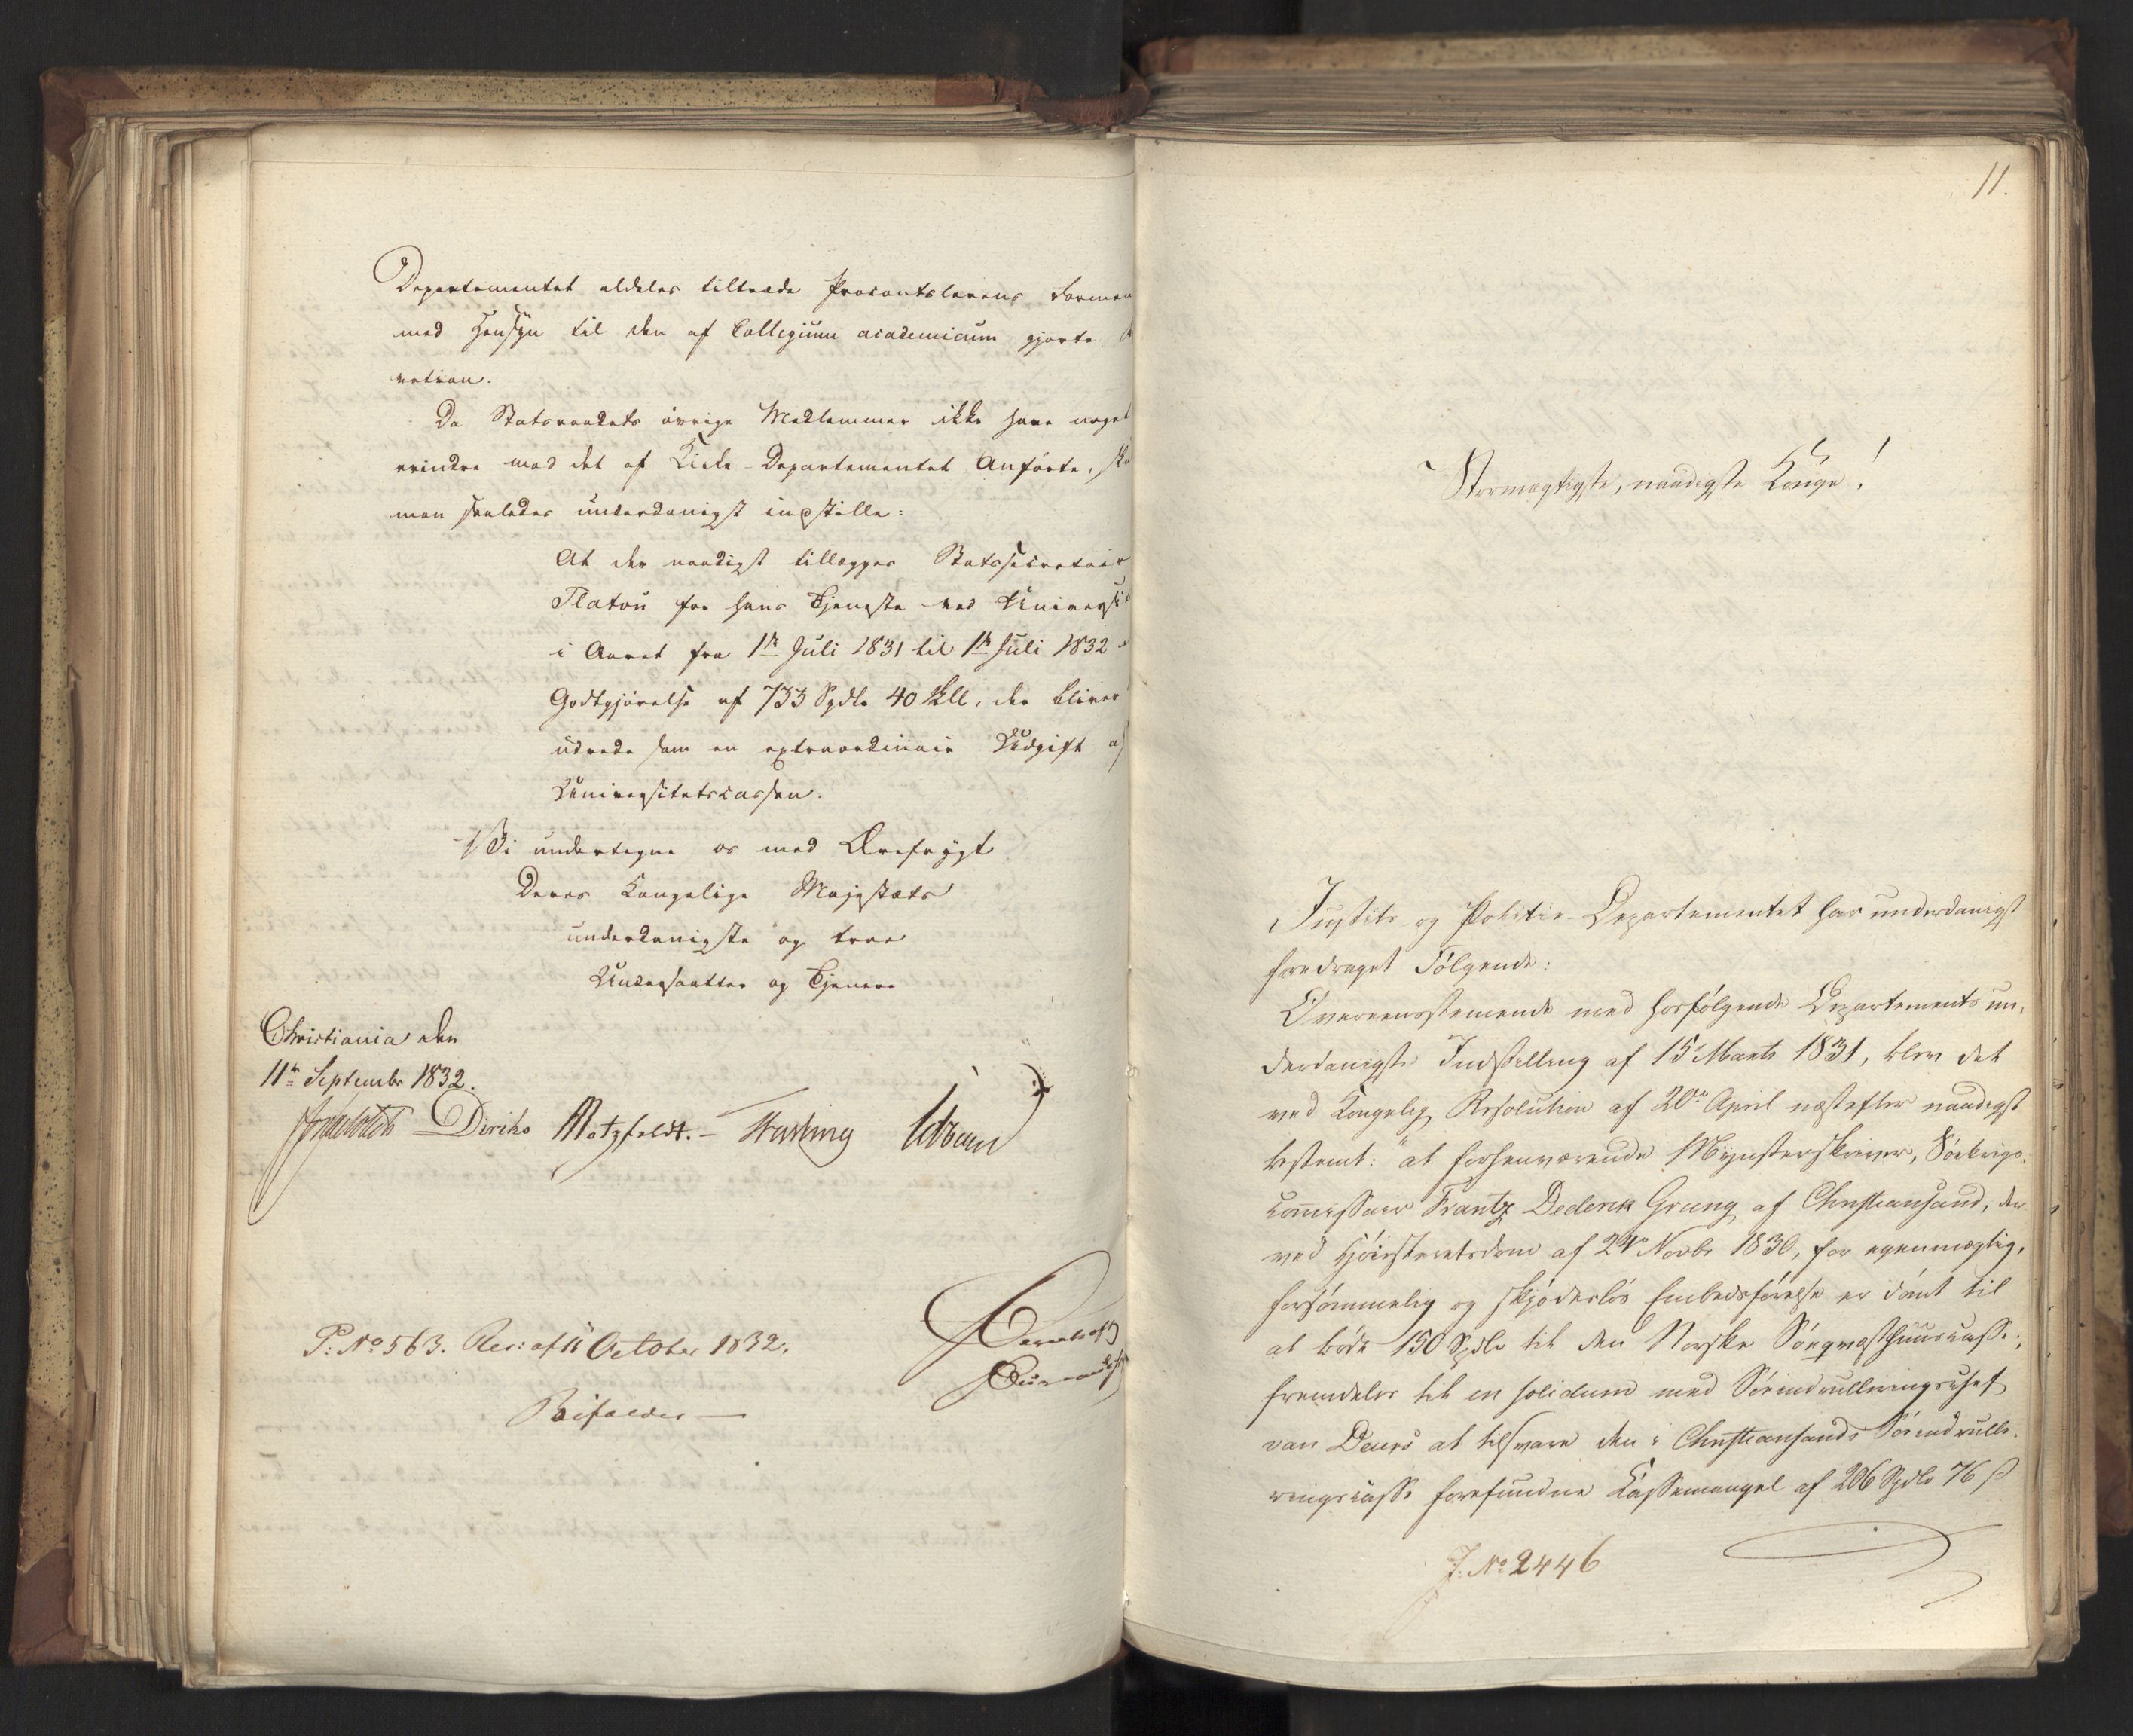 Departementet aldeles tiltræde Procantslerens Formen
med Hensyn til den af Collegium academicum gjorte
vation.
Da Statsraadets øvrige Medlemmer ikke have noget
erindre mod det af Kirke-Departementet Anførte, ska
man saaledes underdanigst indstille:
At der naadigst tillægges Statssecretair
Platou for hans Tjeneste ved Universit
i Aaret fra 1ste Juli 1831 til 1ste Juli 1832
Godtgjørelse af 733 Spdlr 40 skll, der bliver
udrede som en extraordinair Udgift af
Universitetscassen.
Vi undertegne os med Ærefrygt
Deres Kongelige Majestæts
underdanigste og troe
Undersaatter og Tjenere
Christiania den
11te Septembr 1832.
Diriks Motzfeldt. Fasting
P: No 563. Res: af 11 October 1832.
Bifaldes
11.
Stormægtigste, naadigste Konge!
Justits og Politie-Departementet har underdanigst
foredraget Følgende:
Overeensstemmende med hosfølgende Departements un-
derdanigste Indstilling af 15 Marts 1831, blev det
ved Kongelig Resolution af 20de April næstefter naadigst
bestemt: "at forhenværende Mynsterskriver, Søekrigs-
commissair Frantz Dederick Grung af Christiansand, der
ved Høiesteretsdom af 24de Novbr 1830, for egenmægtig,
forsømmelig og skjødesløs Embedsførelse er dømt til
at bøde 150 Spdlr til den Norske Søeqvæsthuuscasse;
fremdeles til in solidum med Søeindrulleringschef
van Deurs at tilsvare den i Christiansands Søeindrulle-
ringscasse forefundne Cassemangel af 206 Spdlr 76 ß
J. No 2446